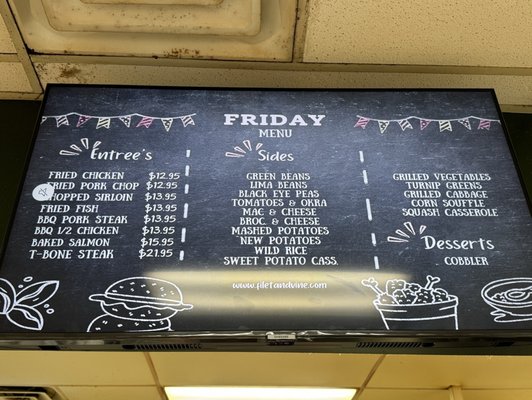 FRIDAY
MENU
Entree's
FRIED CHICKEN $12.95
FRIED PORK CHOP $12.95
CHOPPED SIRLOIN $13.95
FRIED FISH $13.95
BBQ PORK STEAK $13.95
BBQ 1/2 CHICKEN $13.95
BAKED SALMON $15.95
T-BONE STEAK $21.95
Sides
GREEN BEANS
LIMA BEANS
BLACK EYE PEAS
TOMATOES & OKRA
MAC & CHEESE
BROC. & CHEESE
MASHED POTATOES
NEW POTATOES
WILD RICE
SWEET POTATO CASS.
GRILLED VEGETABLES
TURNIP GREENS
GRILLED CABBAGE
CORN SOUFFLE
SQUASH CASSEROLE
Desserts
. COBBLER
www.filetandvine.com